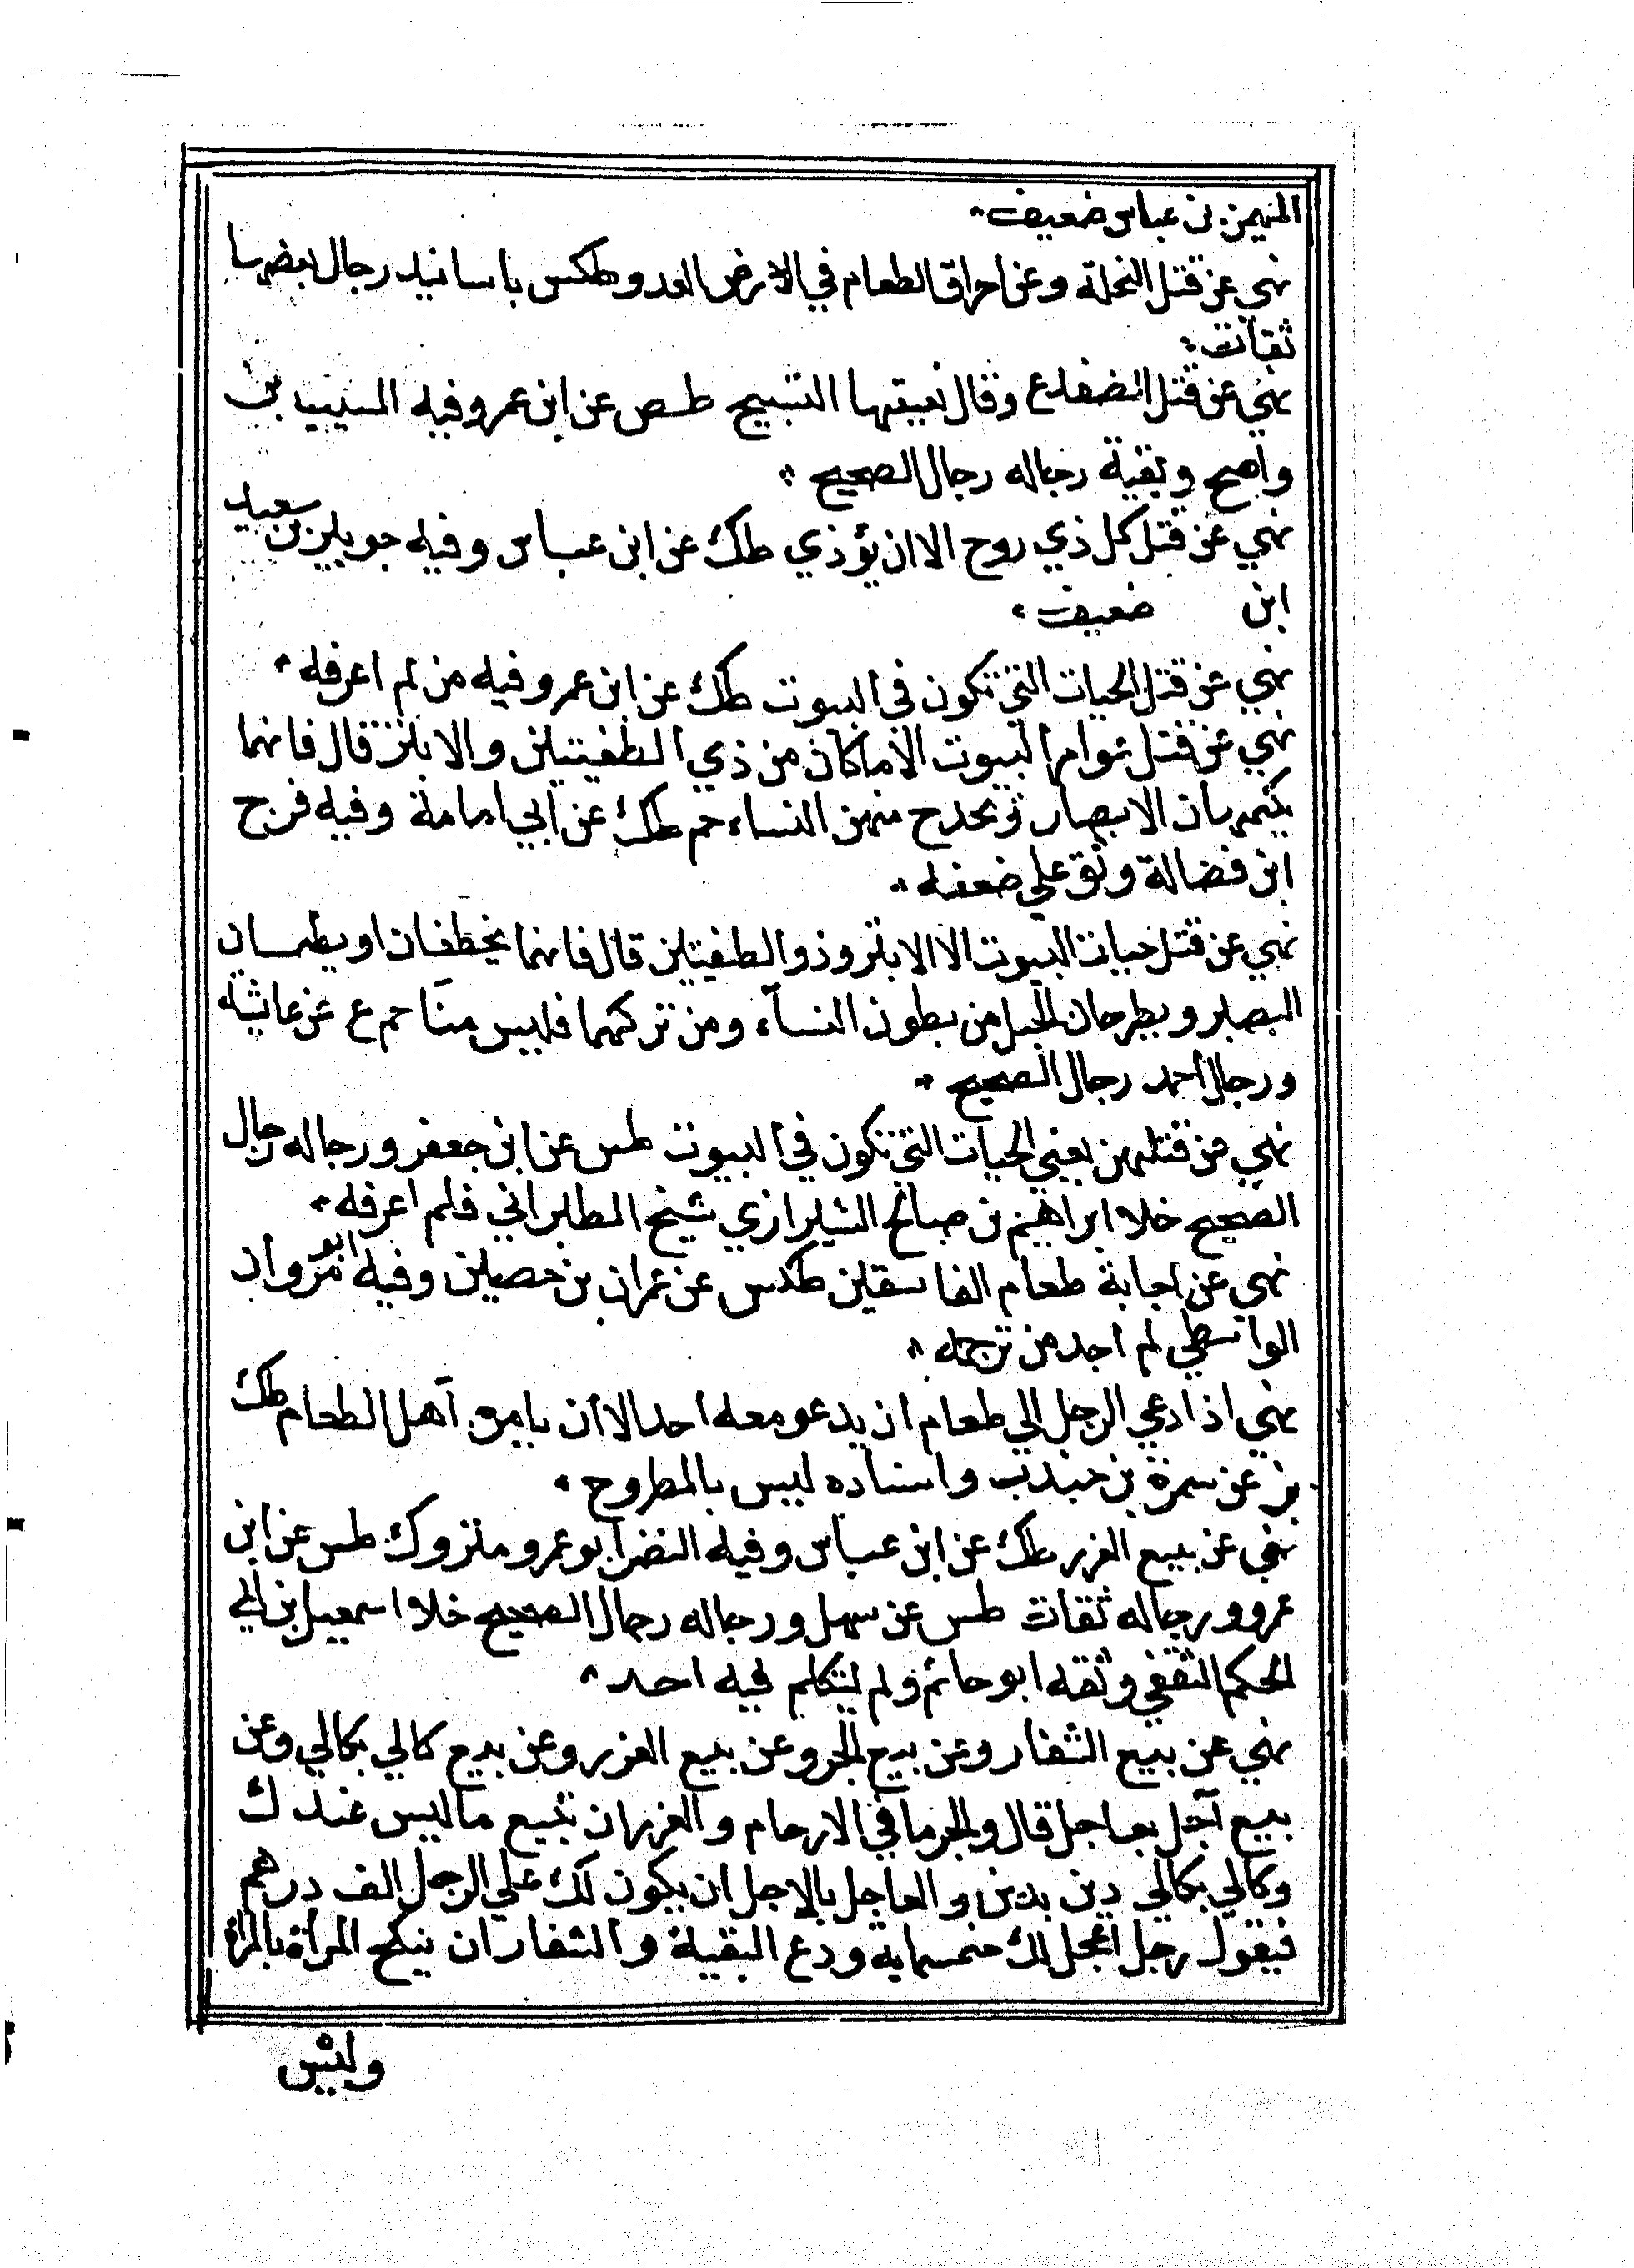 المهيمن بن عباس ضعيف
نهي عن قتل النحلة وعن احراق الطعام في الارض العدو طكس باسانيد رجال بعضها
ثقات
نهي عن قتل الضفدع وقال نعيتها التسبيح طص عن ابن عمر وفيه المسيب بن
واضح وبقية رجاله رجال الصحيح
نهي عن قتل كل ذي روح الا ان يؤذي طك عن ابن عباس وفيه جويبر بن سعيد
ابن ضعيف
نهي عن قتل الحيات التي تكون في البيوت طك عن ابن عمر وفيه من لم اعرفه
نهي عن قتل عوامر البيوت الا ما كان من ذي الطفيتين والابتر قال فانهما
يكمهان الابصار وتخدج منهن النساء حم طك عن ابي امامة وفيه فرج
ابن فضالة وثق علي ضعفه
نهي عن قتل حيات البيوت الا الابتر وذو الطفيتين قال فانهما يخطفان او يطمسان
البصر ويطرحان الحبل من بطون النسآء ومن تركهما فليس منا حم ع عن عائشة
ورجال احمد رجال الصحيح
نهي عن قتلهن يعني الحيات التي تكون في البيوت طس عن ابن جعفر ورجاله رجال
الصحيح خلا ابراهيم بن صالح الشيرازي شيخ الطبراني فلم اعرفه
نهي عن اجابة طعام الفاسقين طكس عن عمران بن حصين وفيه ابو مروان
الواسطي لم اجد من ترجمه
نهي اذا دعي الرجل الي طعام ان يدعو معه احد الا أن يامره أهل الطعام طك
بز عن سمرة بن جندب واسناده ليس بالمطروح
نهي عن بيع الغرر طك عن ابن عباس وفيه النضر ابو عمرو متروك طس عن ابن
عمرو ورجاله ثقات طس عن سهل ورجاله رجال الصحيح خلا اسمعيل بن ابي
الحكم الثقفي وثقه ابو حاتم ولم يتكلم فيه احد
نهي عن بيع الشغار وعن بيع المجر وعن بيع الغرر وعن بيع كالي بكالي وعن
بيع آجل بعاجل قال والمجر ما في الارحام والغرر ان تبيع ما ليس عندك
وكالي بكالي دين بدين والعاجل بالاجل ان يكون لك علي الرجل الف درهم
فيقول رجل اعجل لك خمسماية ودع البقية والشغار ان ينكح المرأة بالمرأة
وليس